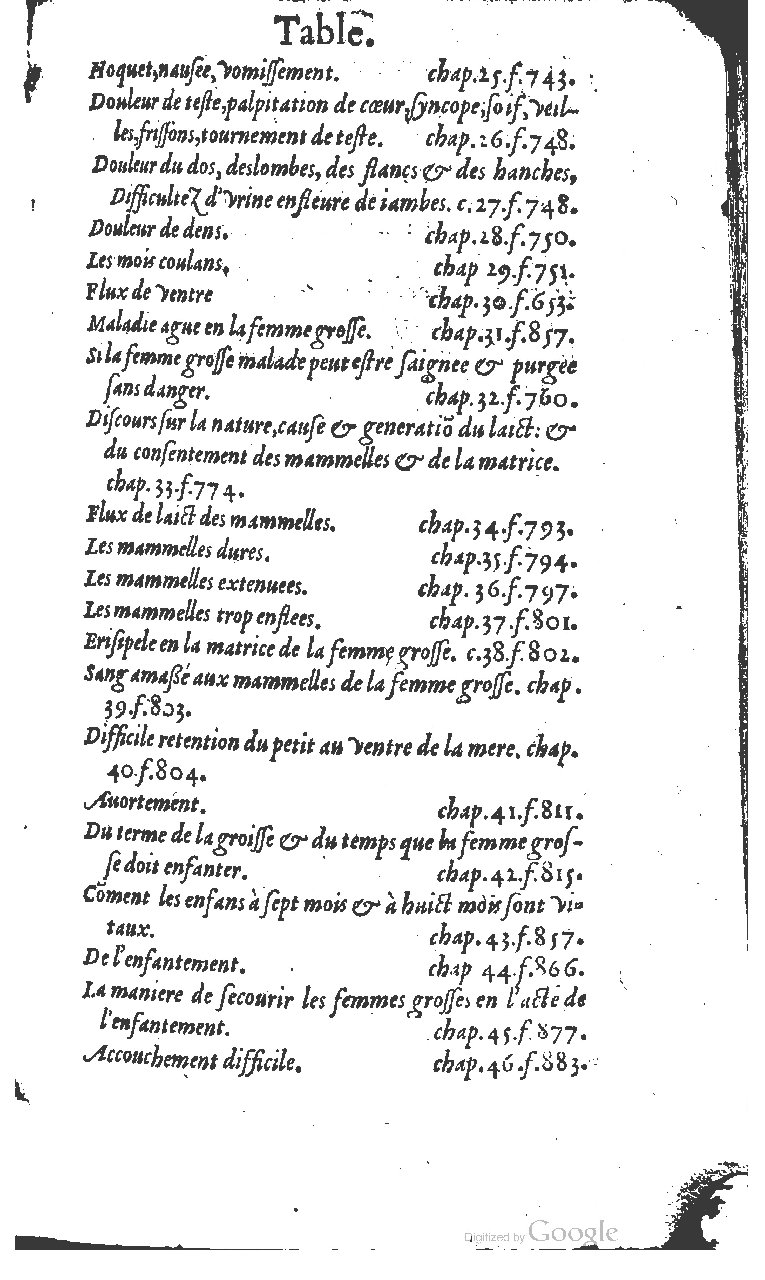 Table.
Hoquet,nauſee, vomiſſement. chap.25.f.743.
Douleur de teſte,palpitation de cœur,ſyncope,ſoif, veil-
les,friſſons,tournement de teſte. chap.26.f.748.
Douleur du dos, deslombes, des flancs & des hanches,
Difficultez d'vrine enfleure de iambes. c.27.f.748.
Douleur de dens. chap.28.f.750.
Les mois coulans, chap 29.f.751.
Flux de ventre chap.30.f.653.
Maladie ague en la femme groſſe. chap.31.f.857.
Si la femme groſſe malade peut eſtre ſaignee & purgee
ſans danger. chap.32.f.760.
Diſcours ſur la nature,cauſe & generatiō du laict: &
du conſentement des mammelles & de la matrice.
chap.33.f.774.
Flux de laict des mammelles. chap.34.f.793.
Les mammelles dures. chap.35.f.794.
Les mammelles extenuees. chap.36.f.797.
Les mammelles trop enflees. chap.37.f.801.
Eriſipele en la matrice de la femme groſſe. c.38.f.802.
Sang amaßé aux mammelles de la femme groſſe. chap.
39.f.803.
Difficile retention du petit au ventre de la mere. chap.
40.f.804.
Auortement. chap.41.f.811.
Du terme de la groiſſe & du temps que la femme groſ-
ſe doit enfanter. chap.42.f.815.
Cōment les enfans à ſept mois & à huict mois ſont vi-
taux. chap.43.f.857.
De l'enfantement. chap 44.f.866.
La maniere de ſecourir les femmes groſſes en l'acte de
l'enfantement. chap.45.f.877.
Accouchement difficile. chap.46.f.883.
Digitized by Google